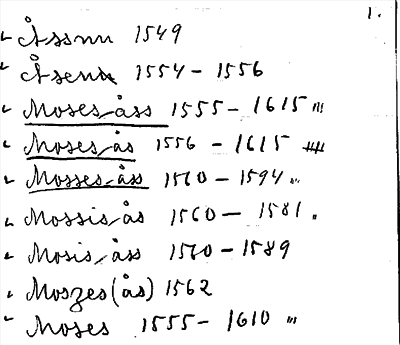 1.
Åssnn 1549
Åsenn 1554 - 1556
Moses-åss 1555 - 1615 III
Moses-ås 1556 - 1615
Mosses-åss 1560 - 1594
Mossis-ås 1560 - 1581
Mosis-åss 1560 - 1589
Moszes (ås) 1562
Moses 1555 - 1610 III